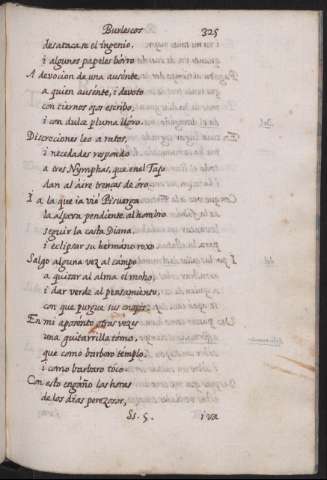 Burlescos 325
desatacaste el ingenio,
i algunos papeles borro
A devocion de una ausente
a quien ausente, i devoto
con tiernos ojos escribo,
i con dulce pluma lloro.
Discreciones leo a ratos,
i necedades respondo
a tres Nymphas, que en el Tajo
dan al aire trenças de oro
I a la que ia vió Pisuerga
la aljava pendiente al hombro
seguir la casta Diana,
i eclipsar su hermano roxo
Salgo alguna vez al campo
a quitar al alma el moho,
i dar verde al pensamiento,
con que purgue sus enojos
En mi aposento otras vezes
una guitarrilla tomo,
que como barbaro templo,
i como barbaro toco
Con esto engaño las horas
de los dias perezosos,
Ss. 5. i va